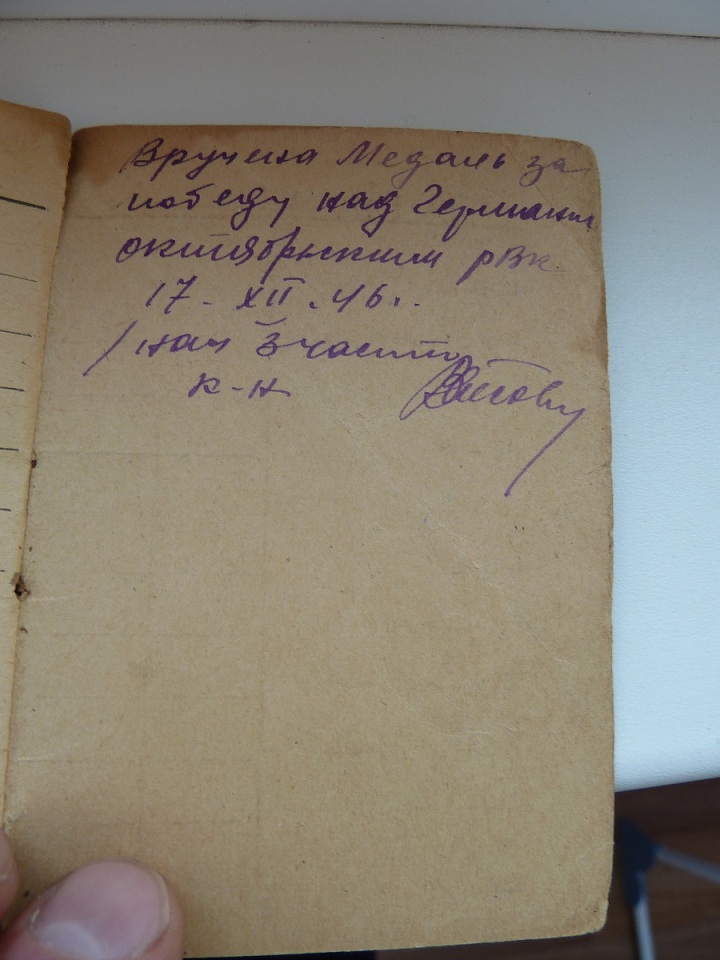 Вручена Медаль за
победу над Германии
октябрьским рвк.
17. XII. 46г.
/ нач 3 части
к-н